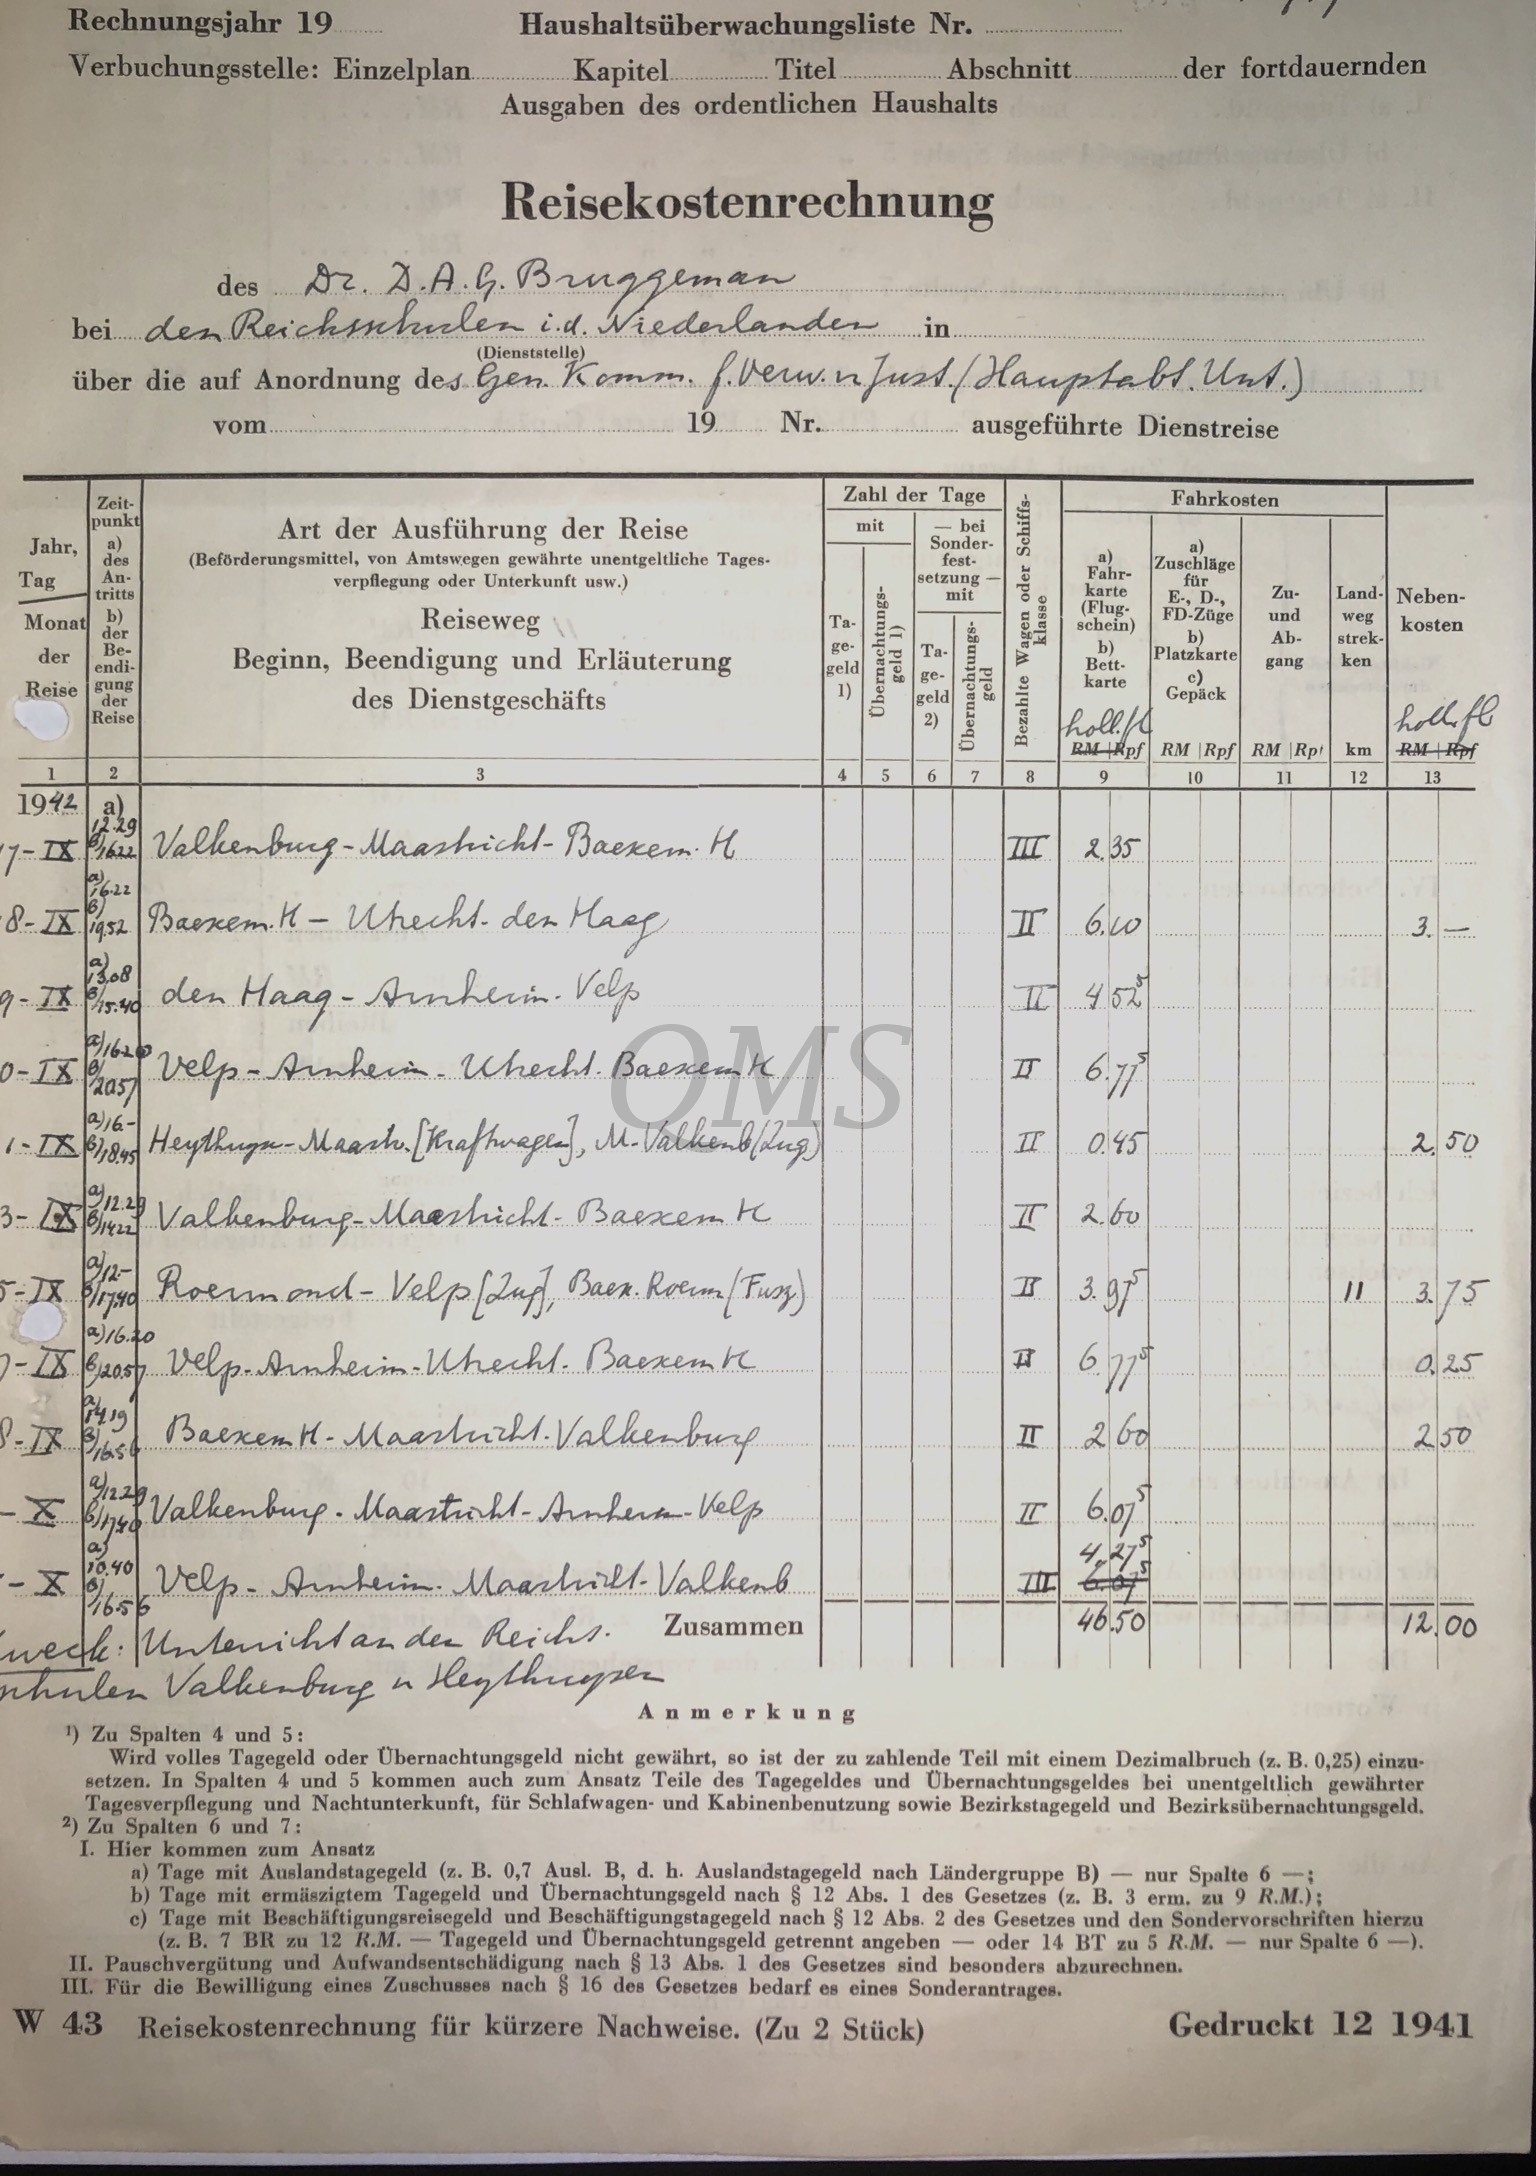 Rechnungsjahr 19 Haushaltsüberwachungsliste Nr.
Verbuchungsstelle: Einzelplan Kapitel Titel Abschnitt der fortdauernden
Ausgaben des ordentlichen Haushalts
Reisekostenrechnung
des Dr. D.A.G. Bruggeman
bei den Reichsschulen i.d. Niederlanden in
(Dienststelle)
über die auf Anordnung des Gen. Komm. f. Verw. u Just. (Hauptabt. Unt.)
vom 19 Nr. ausgeführte Dienstreise
Jahr, Tag Monat der Reise
Zeit-
punkt
a)
des
An-
tritts
b)
der
Be-
endi-
gung
der
Reise
Art der Ausführung der Reise
(Beförderungsmittel, von Amtswegen gewährte unentgeltliche Tages-
verpflegung oder Unterkunft usw.)
Reiseweg
Beginn, Beendigung und Erläuterung
des Dienstgeschäfts
Zahl der Tage
mit
Ta-
ge-
geld
1)
Übernachtungs-
geld 1)
— bei
Sonder-
fest-
setzung —
mit
Ta-
ge-
geld
2)
Übernachtungs-
geld
Bezahlte Wagen oder Schiffs-
klasse
Fahrkosten
a)
Fahr-
karte
(Flug-
schein)
b)
Bett-
karte
holl. fl
RM Rpf
a)
Zuschläge
für
E-, D-,
FD-Züge
b)
Platzkarte
c)
Gepäck
RM Rpf
Zu-
und
Ab-
gang
RM Rpf
Land-
weg
strek-
ken
km
Neben-
kosten
holl. fl
RM Rpf
1 2 3 4 5 6 7 8 9 10 11 12 13
1942 a)
7-IX 12.29 b) 1622 Valkenburg - Maastricht - Baexem. H III 2.35
8-IX a) 16.22 b) 19.52 Baexem. H - Utrecht - den Haag II 6.10 3.—
9-IX a) 13.08 b) 15.40 den Haag - Arnheim - Velp II 4 52⁵
0-IX a) 16.20 b) 2057 Velp - Arnheim - Utrecht. Baexem H II 6.77⁵
1-IX a) 16.- b) 18.45 Heythuysn - Maastr. [Kraftwagen], M - Valkenb (Zug) II 0.45 2.50
3-IX a) 12.29 b) 1422 Valkenburg - Maastricht - Baexem H II 2.60
5-IX a) 12.- b) 17.40 Roermond - Velp [Zug], Baex. Roerm (Fusz) II 3.97⁵ 11 3.75
7-IX a) 16.20 b) 2057 Velp - Arnheim - Utrecht - Baexem H II 6.77⁵ 0.25
8-IX a) 1419 b) 16.56 Baexem H - Maastricht. Valkenburg II 2 60 2 50
- X a) 12.29 b) 1740 Valkenburg - Maastricht - Arnheim - Velp II 6.07⁵
- X a) 10.40 b) 16.56 Velp - Arnheim - Maastricht - Valkenb III 4.27⁵ 6.07⁵
Zusammen 46.50 12.00
Zweck: Unterricht an den Reichs-
schulen Valkenburg u Heythuysen
Anmerkung
¹) Zu Spalten 4 und 5:
Wird volles Tagegeld oder Übernachtungsgeld nicht gewährt, so ist der zu zahlende Teil mit einem Dezimalbruch (z. B. 0,25) einzu-
setzen. In Spalten 4 und 5 kommen auch zum Ansatz Teile des Tagegeldes und Übernachtungsgeldes bei unentgeltlich gewährter
Tagesverpflegung und Nachtunterkunft, für Schlafwagen- und Kabinenbenutzung sowie Bezirkstagegeld und Bezirksübernachtungsgeld.
²) Zu Spalten 6 und 7:
I. Hier kommen zum Ansatz
a) Tage mit Auslandstagegeld (z. B. 0,7 Ausl. B, d. h. Auslandstagegeld nach Ländergruppe B) — nur Spalte 6 —;
b) Tage mit ermäszigtem Tagegeld und Übernachtungsgeld nach § 12 Abs. 1 des Gesetzes (z. B. 3 erm. zu 9 R.M.);
c) Tage mit Beschäftigungsreisegeld und Beschäftigungstagegeld nach § 12 Abs. 2 des Gesetzes und den Sondervorschriften hierzu
(z. B. 7 BR zu 12 R.M. — Tagegeld und Übernachtungsgeld getrennt angeben — oder 14 BT zu 5 R.M. — nur Spalte 6 —).
II. Pauschvergütung und Aufwandsentschädigung nach § 13 Abs. 1 des Gesetzes sind besonders abzurechnen.
III. Für die Bewilligung eines Zuschusses nach § 16 des Gesetzes bedarf es eines Sonderantrages.
W 43 Reisekostenrechnung für kürzere Nachweise. (Zu 2 Stück) Gedruckt 12 1941
QMS